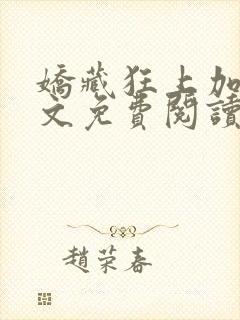 嬌藏狂上加
文免費閱讀
趙荣春